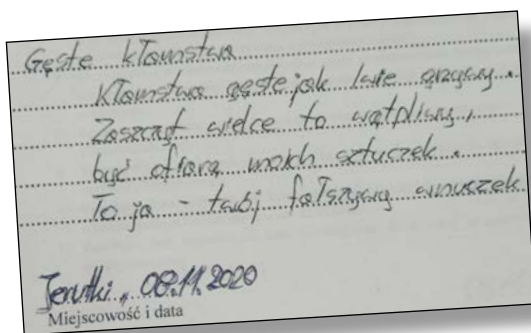 Gęste kłamstwa
Kłamstwa gęste jak lwie grzywy.
Zaszczyt wielce to wątpliwy,
być ofiarą moich sztuczek.
To ja - twój fałszywy wnuczek
Jerutki, 08.11.2020
Miejscowość i data